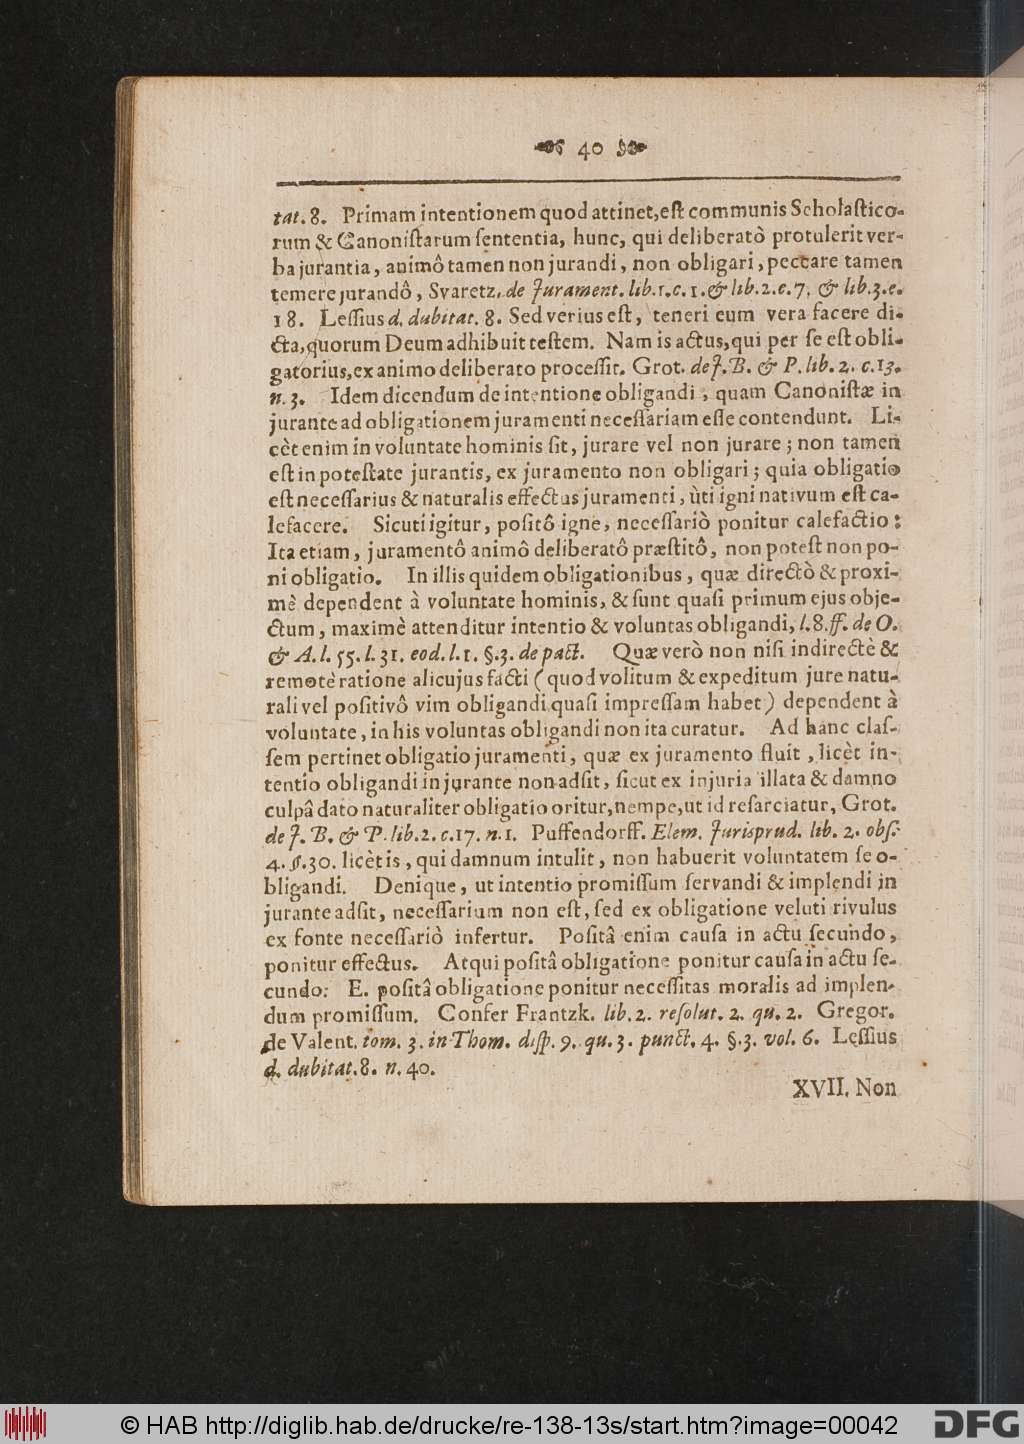 40
tat. 8. Primam intentionem quod attinet, eſt communis Scholaſtico-
rum & Canoniſtarum ſententia, hunc, qui deliberatò protulerit ver-
ba jurantia, animô tamen non jurandi, non obligari, peccare tamen
temere jurandô, Svaretz. de Jurament. lib. 1. c. 1. & lib. 2. c. 7. & lib. 3. c.
18. Leſſius d. dubitat. 8. Sed verius eſt, teneri eum vera facere di-
cta, quorum Deum adhibuit teſtem. Nam is actus, qui per ſe eſt obli-
gatorius, ex animo deliberato proceſſit. Grot. de J. B. & P. lib. 2. c. 13.
n. 3. Idem dicendum de intentione obligandi, quam Canoniſtæ in
jurante ad obligationem juramenti neceſſariam eſſe contendunt. Li-
cèt enim in voluntate hominis ſit, jurare vel non jurare; non tamen
eſt in poteſtate jurantis, ex juramento non obligari; quia obligatio
eſt neceſſarius & naturalis effectus juramenti, ùti igni nativum eſt ca-
lefacere. Sicuti igitur, poſitô igne, neceſſariò ponitur calefactio:
Ita etiam, juramentô animô deliberatô præſtitô, non poteſt non po-
ni obligatio. In illis quidem obligationibus, quæ directò & proxi-
mè dependent à voluntate hominis, & ſunt quaſi primum ejus obje-
ctum, maximè attenditur intentio & voluntas obligandi, l. 8. ff. de O.
& A. l. 55. l. 31. eod. l. 1. §. 3. de pact. Quæ verò non niſi indirectè &
remotè ratione alicujus facti (quod volitum & expeditum jure natu-
rali vel poſitivô vim obligandi quaſi impreſſam habet) dependent à
voluntate, in his voluntas obligandi non ita curatur. Ad hanc claſ-
ſem pertinet obligatio juramenti, quæ ex juramento fluit, licèt in-
tentio obligandi in jurante non adſit, ſicut ex injuria illata & damno
culpâ dato naturaliter obligatio oritur, nempe, ut id reſarciatur, Grot.
de J. B. & P. lib. 2. c. 17. n. 1. Puffendorff. Elem. Jurisprud. lib. 2. obſ.
4. §. 30. licèt is, qui damnum intulit, non habuerit voluntatem ſe o-
bligandi. Denique, ut intentio promiſſum ſervandi & implendi in
jurante adſit, neceſſarium non eſt, ſed ex obligatione veluti rivulus
ex fonte neceſſariò infertur. Poſitâ enim cauſa in actu ſecundo,
ponitur effectus. Atqui poſitâ obligatione ponitur cauſa in actu ſe-
cundo: E. poſitâ obligatione ponitur neceſſitas moralis ad implen-
dum promiſſum. Confer Frantzk. lib. 2. reſolut. 2. qu. 2. Gregor.
de Valent. tom. 3. in Thom. diſp. 9. qu. 3. punct. 4. §. 3. vol. 6. Leſſius
d. dubitat. 8. n. 40.
XVII. Non
© HAB http://diglib.hab.de/drucke/re-138-13s/start.htm?image=00042
DFG